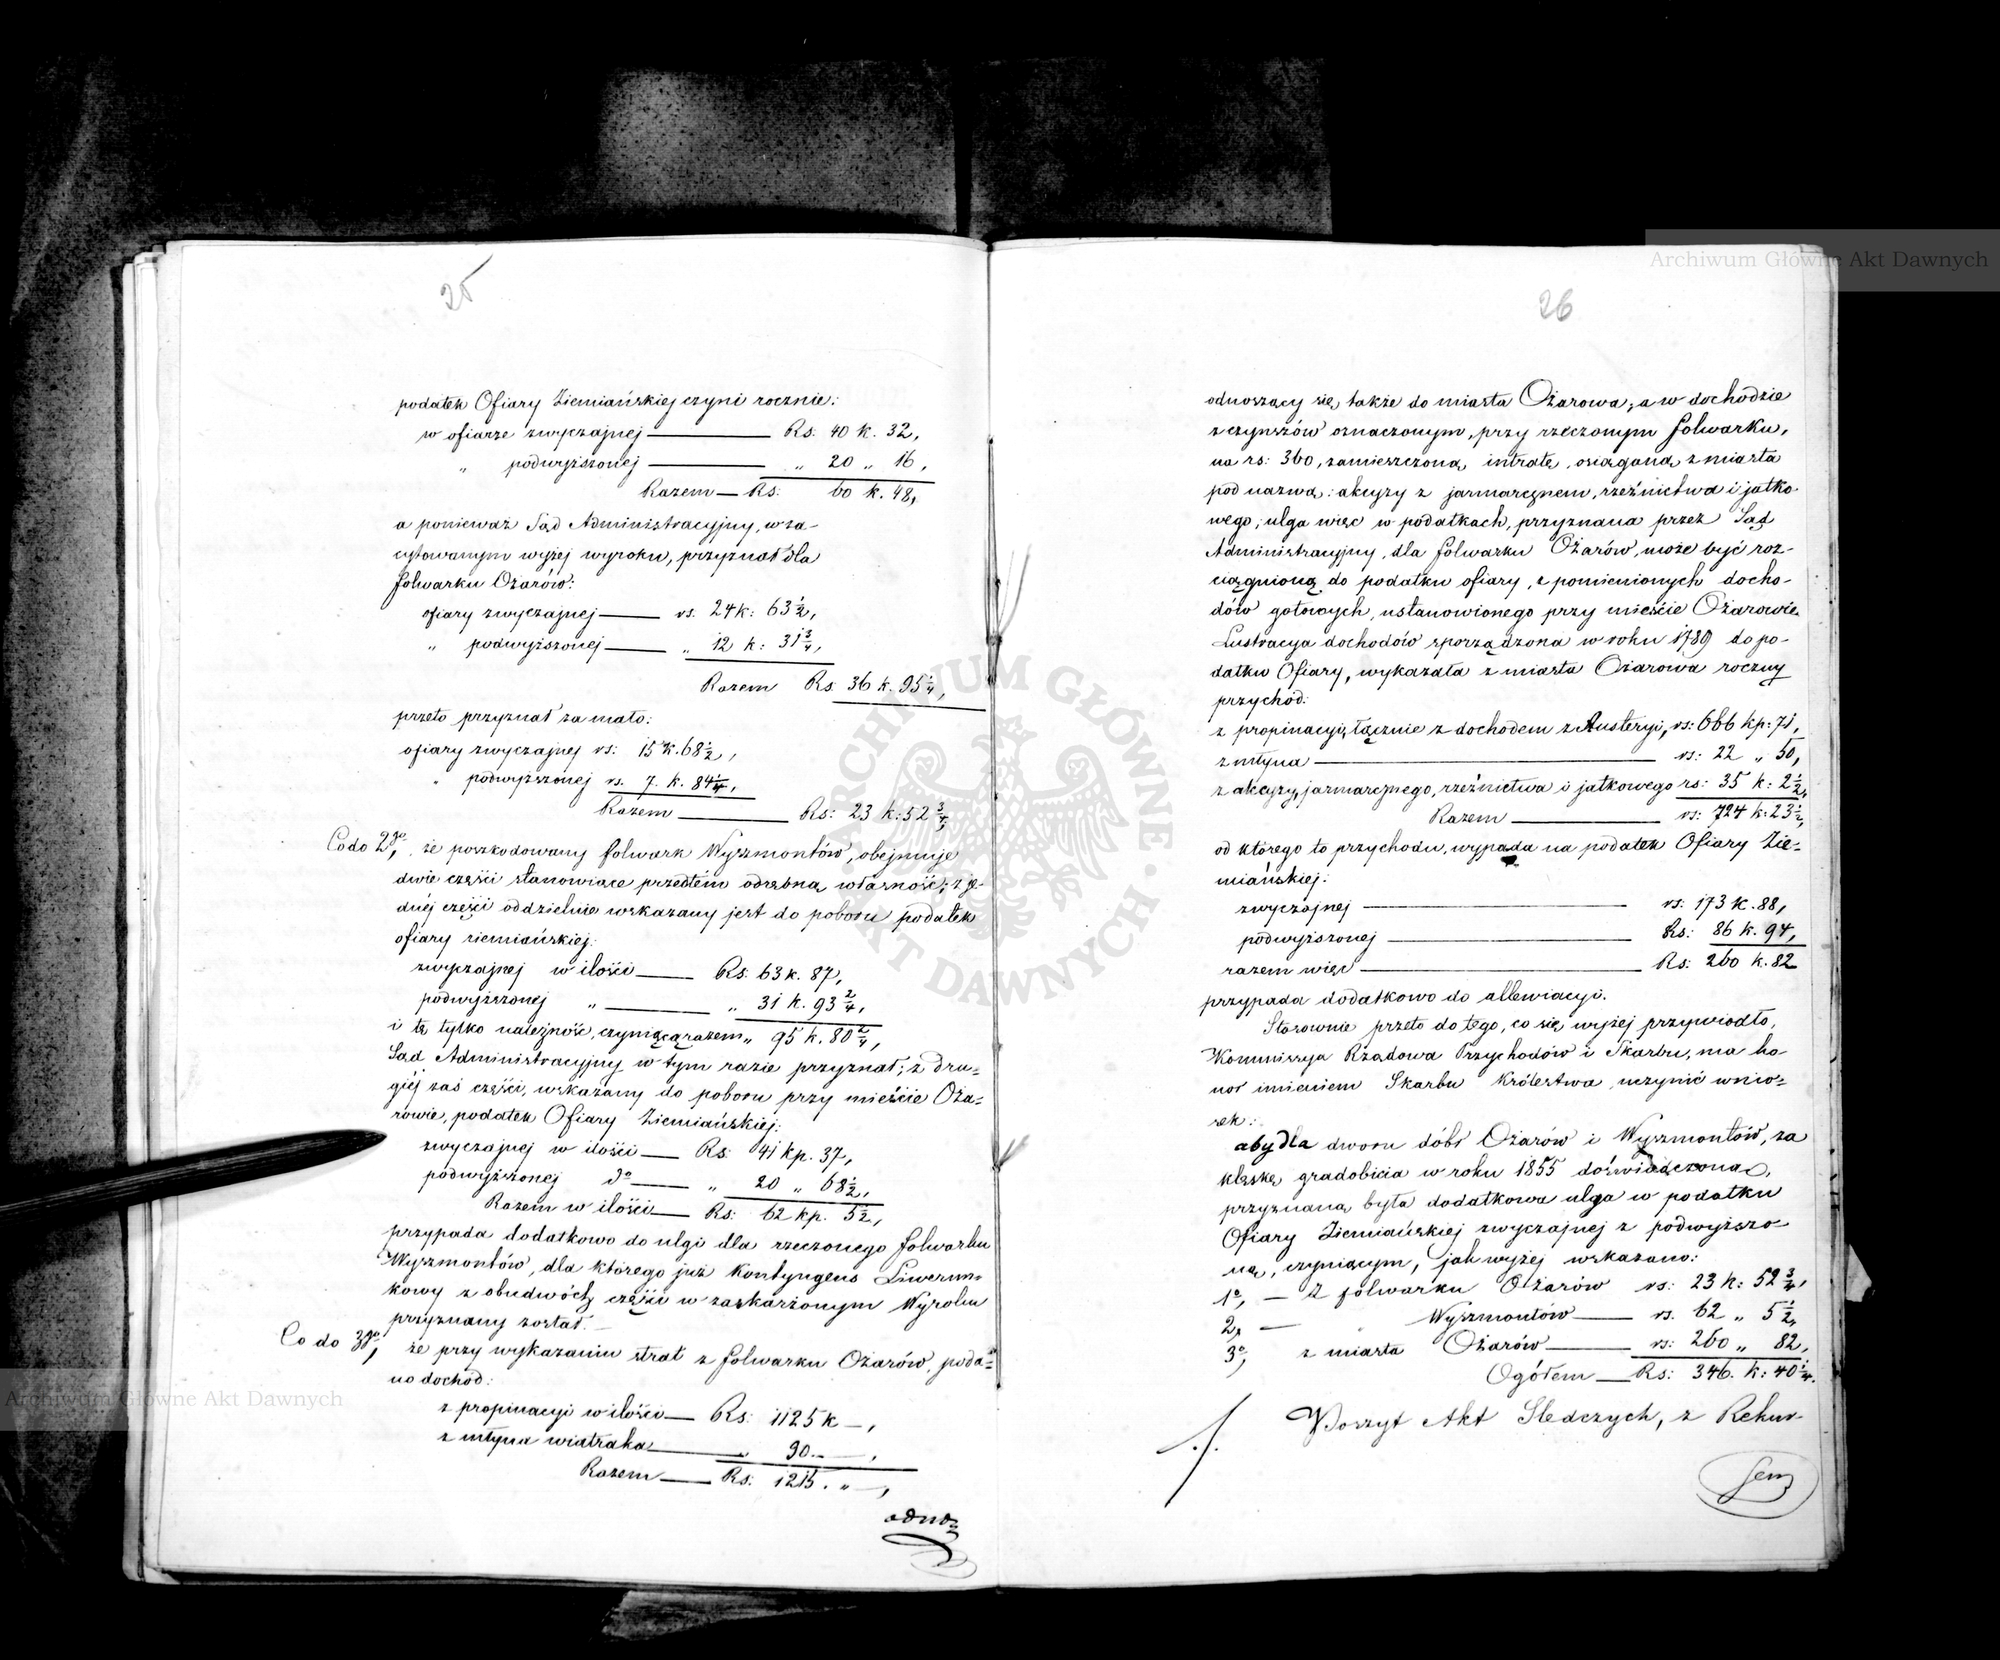 25
podatek Ofiary Ziemiańskiej czyni rocznie:
w ofiarze zwyczajnej — Rs: 40 k. 32,
„ podwyższonej — „ 20 „ 16,
Razem — Rs: 60 k. 48,
a ponieważ Sąd Administracyjny, w za-
cytowanym wyżej wyroku, przyznał dla
folwarku Ożarów:
ofiary zwyczajnej — rs. 24 k: 63 1/2,
„ podwyższonej — „ 12 k: 31 3/4,
Razem Rs. 36 k. 95 1/4,
przeto przyznał za mało:
ofiary zwyczajnej rs: 15 k. 68 1/2,
„ podwyższonej rs. 7. k. 84 1/4,
Razem — Rs: 23 k: 52 3/4,
Co do 2go, że poszkodowany folwark Wyszmontów, obejmuje
dwie części stanowiące przedtem odrębną własność; z je-
dnéj części oddzielnie wskazany jest do poboru podatek
ofiary ziemiańskiej:
zwyczajnej w ilości — Rs. 63 k. 87,
podwyższonej „ — „ 31 k. 93 2/4,
i tę tylko należność, czyniącą razem „ 95 k. 80 2/4,
Sąd Administracyjny w tym razie przyznał; z dru-
giéj zaś części, wskazany do poboru przy mieście Oża-
rowie, podatek Ofiary Ziemiańskiej:
zwyczajnej w ilości — Rs: 41 kp. 37,
podwyższonej do — „ 20 „ 68 1/2,
Razem w ilości — Rs: 62 kp. 5 1/2,
przypada dodatkowo do ulgi dla rzeczonego folwarku
Wyszmontów, dla którego już Kontyngens Liwerun-
kowy z obudwóch części w zaskarżonym Wyroku
przyznany został. —
Co do 3go, że przy wykazaniu strat z folwarku Ożarów, poda-
no dochód:
z propinacyi w ilości — Rs: 1125 k —,
z młyna wiatraka — „ 90. —,
Razem — Rs: 1215. „ —,
odno-
26
odnoszący się, także do miasta Ożarowa; a w dochodzie
z czynszów oznaczonym, przy rzeczonym folwarku,
na rs: 360, zamieszczoną intratę, osiąganą z miasta
pod nazwą: akcyzy z jarmarcznem, rzeźnictwa i jatko-
wego; ulga więc w podatkach, przyznana przez Sąd
Administracyjny, dla folwarku Ożarów, może być roz-
ciągnioną do podatku ofiary, z pomienionych docho-
dów gotowych, ustanowionego przy mieście Ożarowie.
Lustracya dochodów sporządzona w roku 1789 do po-
datku Ofiary, wykazała z miasta Ożarowa roczny
przychód:
z propinacyi, łącznie z dochodem z Austeryi, rs: 666 kp: 71,
z młyna — rs: 22 „ 50,
z akcyzy, jarmarcznego, rzeźnictwa i jatkowego rs: 35 k: 2 1/2,
Razem — rs: 724 k: 23 1/2,
od którego to przychodu, wypada na podatek Ofiary Zie-
miańskiej:
zwyczajnej — rs: 173 k. 88,
podwyższonej — Rs: 86 k. 94,
razem więc — Rs: 260 k. 82
przypada dodatkowo do allewiacyi.
Stósownie przeto do tego, co się wyżej przywiodło,
Kommissya Rządowa Przychodów i Skarbu, ma ho-
nor imieniem Skarbu Królestwa uczynić wnio-
sek:
aby dla dworu dóbr Ożarów i Wyszmontów, za
klęskę gradobicia w roku 1855 doświadczoną,
przyznaną była dodatkowa ulga w podatku
Ofiary Ziemiańskiej zwyczajnej z podwyższo-
ną, czyniącym, jak wyżej wskazano:
1o, — Z folwarku Ożarów rs: 23 k: 52 3/4,
2, — Wyszmontów — rs. 62 „ 5 1/2,
3o, z miasta Ożarów — rs: 260 „ 82,
Ogółem — Rs: 346. k: 40 1/4.
Poszyt Akt Śledczych, z Rekur-
sem
Archiwum Główne Akt Dawnych
Archiwum Główne Akt Dawnych
ARCHIWUM GŁÓWNE AKT DAWNYCH